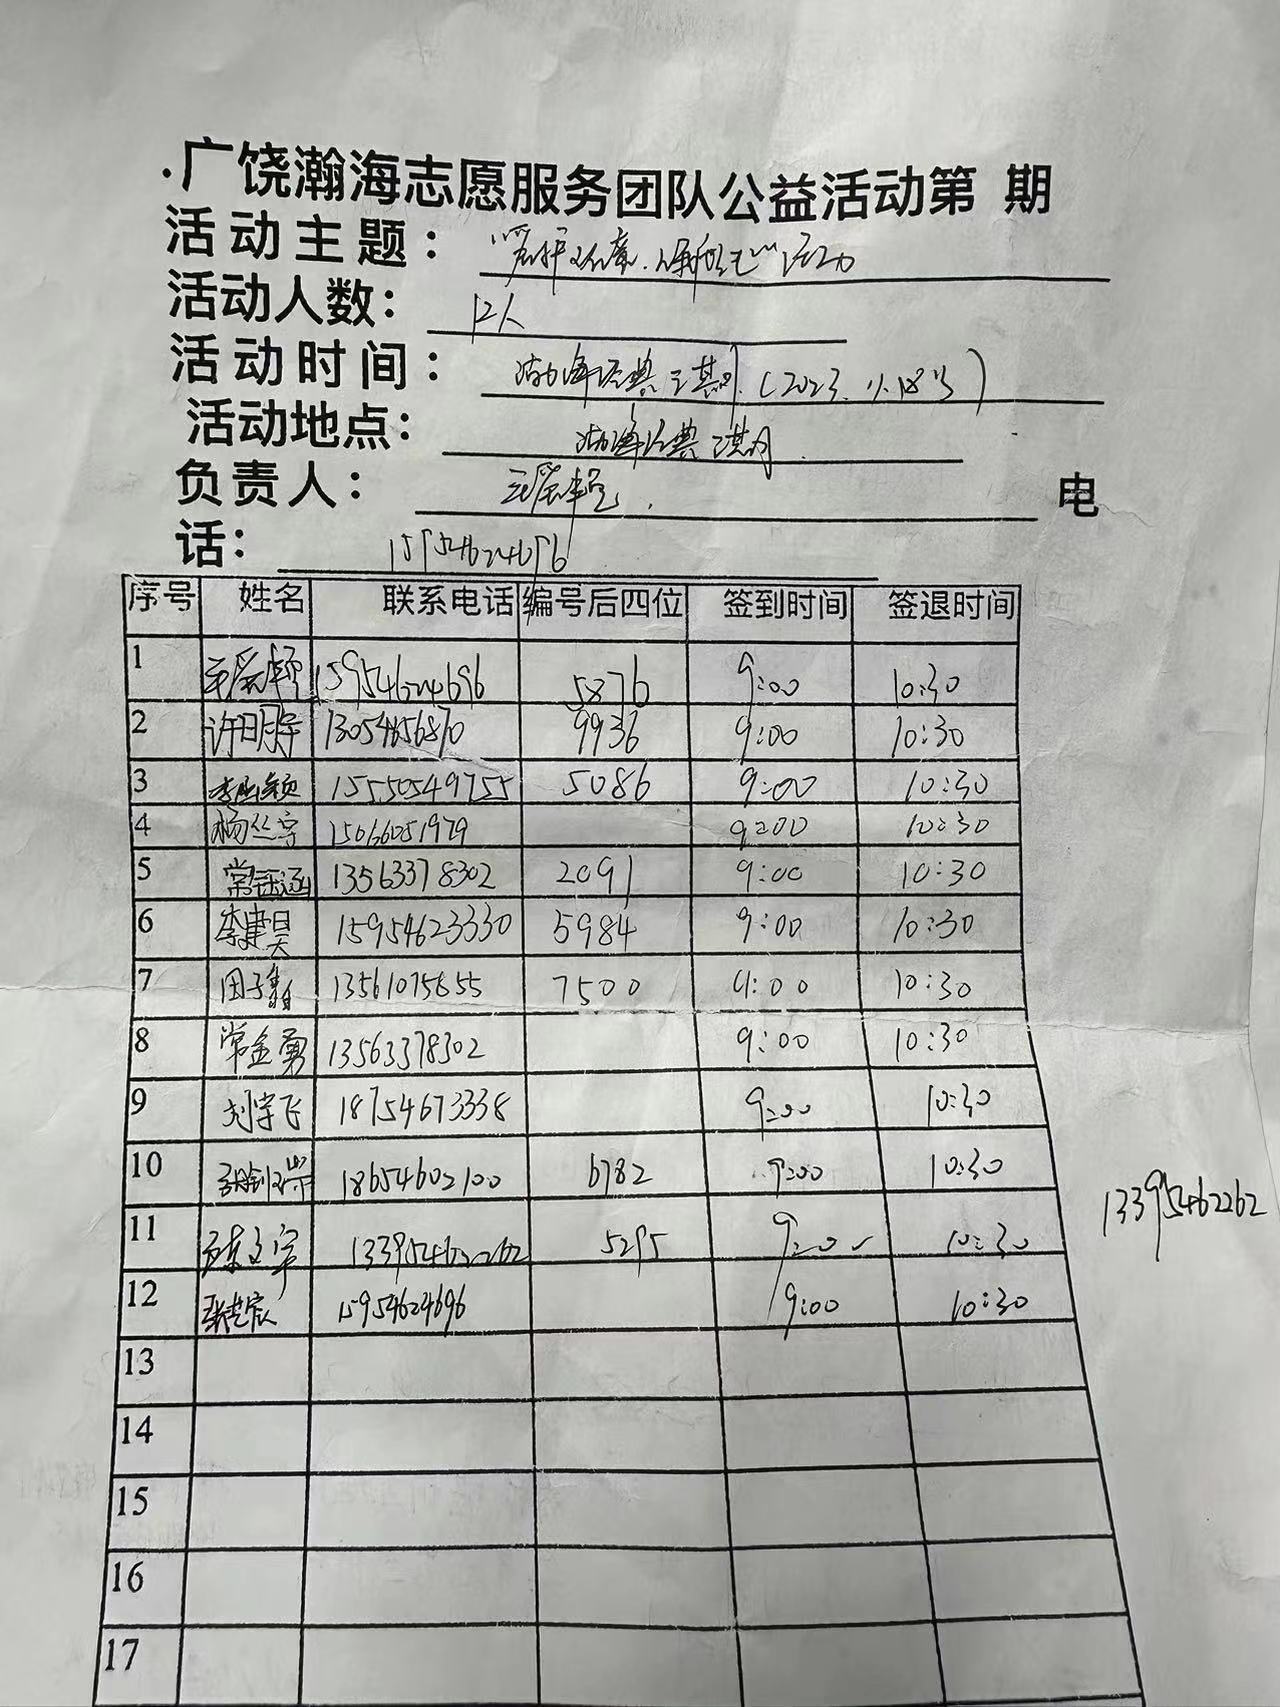 .广饶瀚海志愿服务团队公益活动第 期
活动主题： 活动
活动人数： 12人
活动时间： 渤海经典二期（2023.11.18号）
活动地点： 渤海经典二期
负责人： 电
话： 15954624696
序号 姓名 联系电话 编号后四位 签到时间 签退时间
1 15954624696 5876 9:00 10:30
2 许明 13054656870 9936 9:00 10:30
3 15550549755 5086 9:00 10:30
4 杨 15066051979 9:00 10:30
5 常钰涵 13563378302 2091 9:00 10:30
6 李建昊 15954623330 5984 9:00 10:30
7 田子 13561075855 7500 9:00 10:30
8 常金勇 13563378302 9:00 10:30
9 刘宇飞 18754673338 9:00 10:30
10 18654602100 6782 9:00 10:30
11 文宇 13395462262 5295 9:00 10:30
13395462262
12 张 15954624696 9:00 10:30
13
14
15
16
17